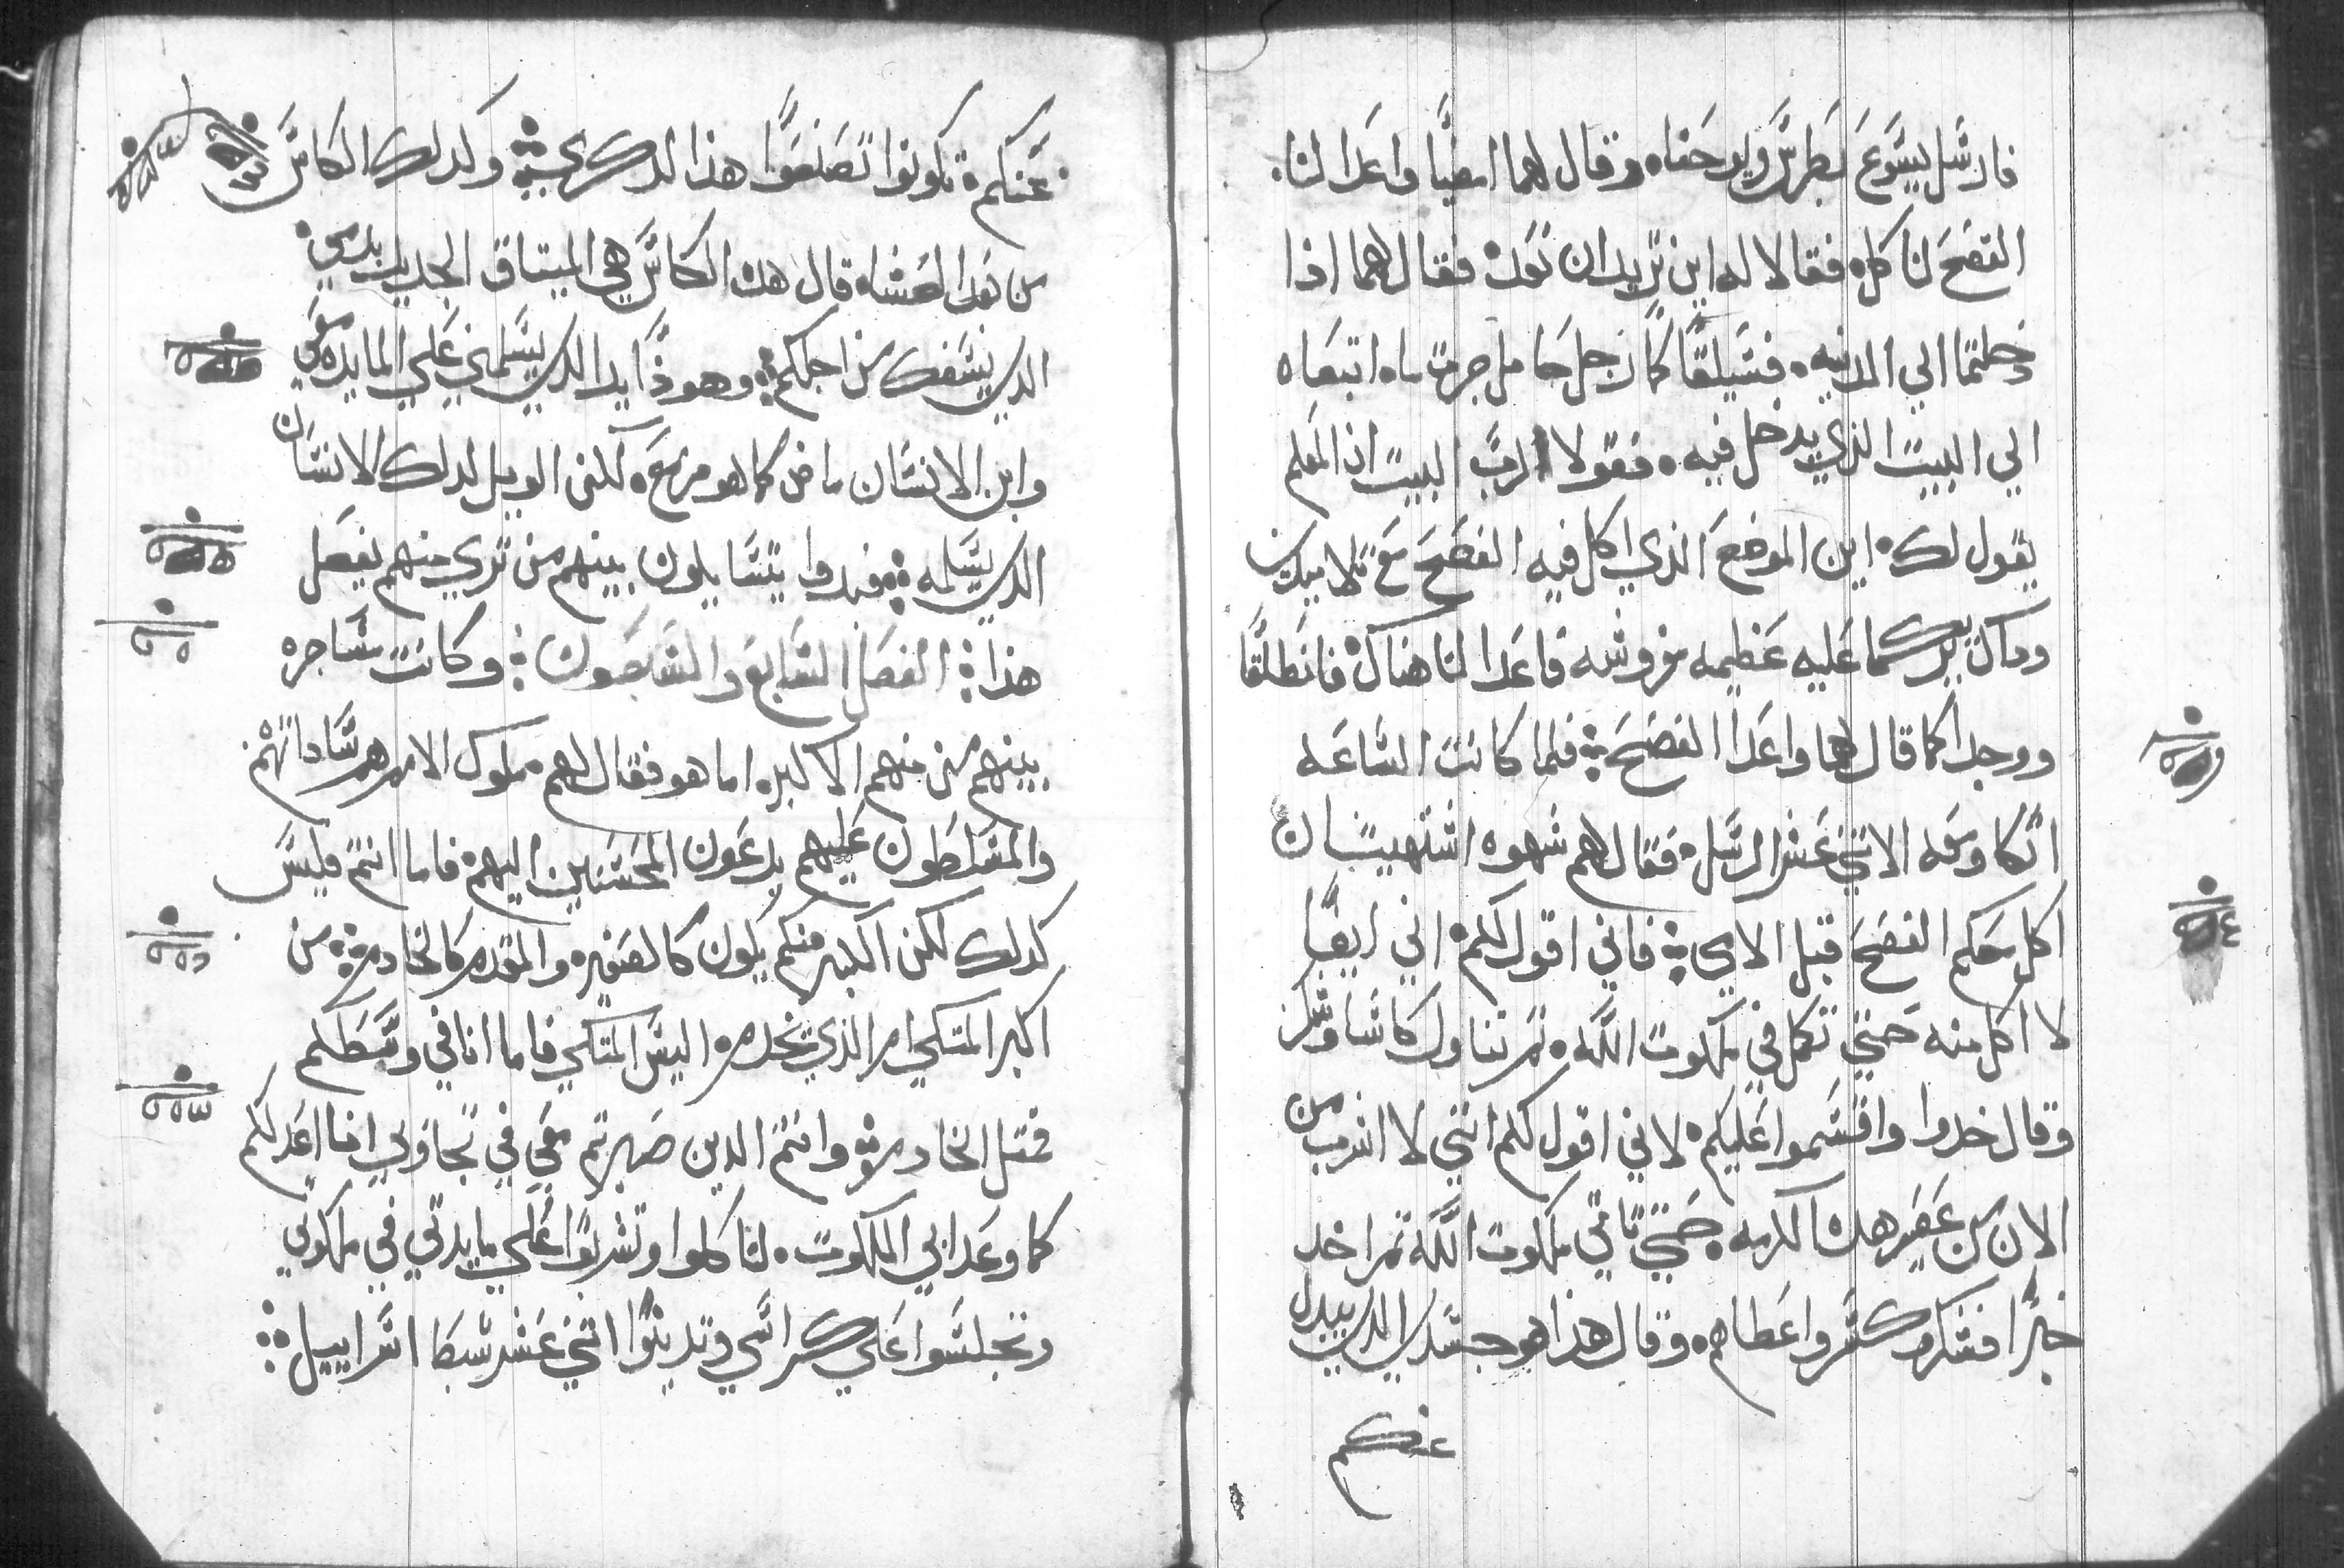 فارسل يسوع بطرس ويوحنا وقال لهما امضيا واعدا لنا
الفصح لناكله فقالا له اين تريد ان نعد فقال لهما اذا
دخلتما الي المدينه فسيلقاكما رجل حامل جره ماء اتبعاه
الي البيت الذي يدخل فيه فقولا لرب البيت ان المعلم
يقول لك اين الموضع الذي اكل فيه الفصح مع تلاميذي
وداك يريكما عليه عظيمه مفروشه فاعدا لنا هناك فانطلقا
ووجدا كما قال لهما واعدا الفصح فلما كانت الساعه
اتكا ومعه الاتني عشر الرسل فقال لهم شهوه اشتهيت ان
اكل معكم الفصح قبل الامي فاني اقول لكم اني ايضا
لا اكل منه حتي تكمل في ملكوت الله تم تناول كاسا وشكر
وقال خدوا واقسموا عليكم لاني اقول لكم انني لا اشرب من
الان من عصير هده الكرمه حتي تاتي ملكوت الله تم اخد
خبزا فشكر وكسر واعطاهم وقال هذا هو جسدي الدي يبدل
عنكم
عنكم تكونوا تصنعوا هذا لدكري وكدلك الكاس
من بعد العشاء قال هده الكاس هي الميتاق الجديد بدمي
الدي يسفك من اجلكم وهوذا يد الدي يسلمني علي المايده معي
وابن الانسان ماض كما هو مزمع لكن الويل لدلك الانسان
الدي يسلمه فبدوا يتسايلون بينهم من تري منهم يفعل
هذا الفصل السابع والسبعون وكانت مشاجره
بينهم من منهم الاكبر اما هو فقال لهم ملوك الامم هم ساداتهم
والمسلطون عليهم يدعون المحسنين اليهم فاما انتم فليس
كدلك لكن الكبير منكم يكون كالصغير والمقدم كالخادم من
اكبر المتكي ام الذي يخدم اليس المتكي فاما انا في وسطكم
فمتل الخادم وانتم الدين صبرتم معي في تجاربي انا اعد لكم
كما وعد ابي الملكوت لتاكلوا وتشربوا علي مايدتي في ملكوتي
وتجلسوا علي كراسي وتدينوا اتني عشر سبطا اسراييل